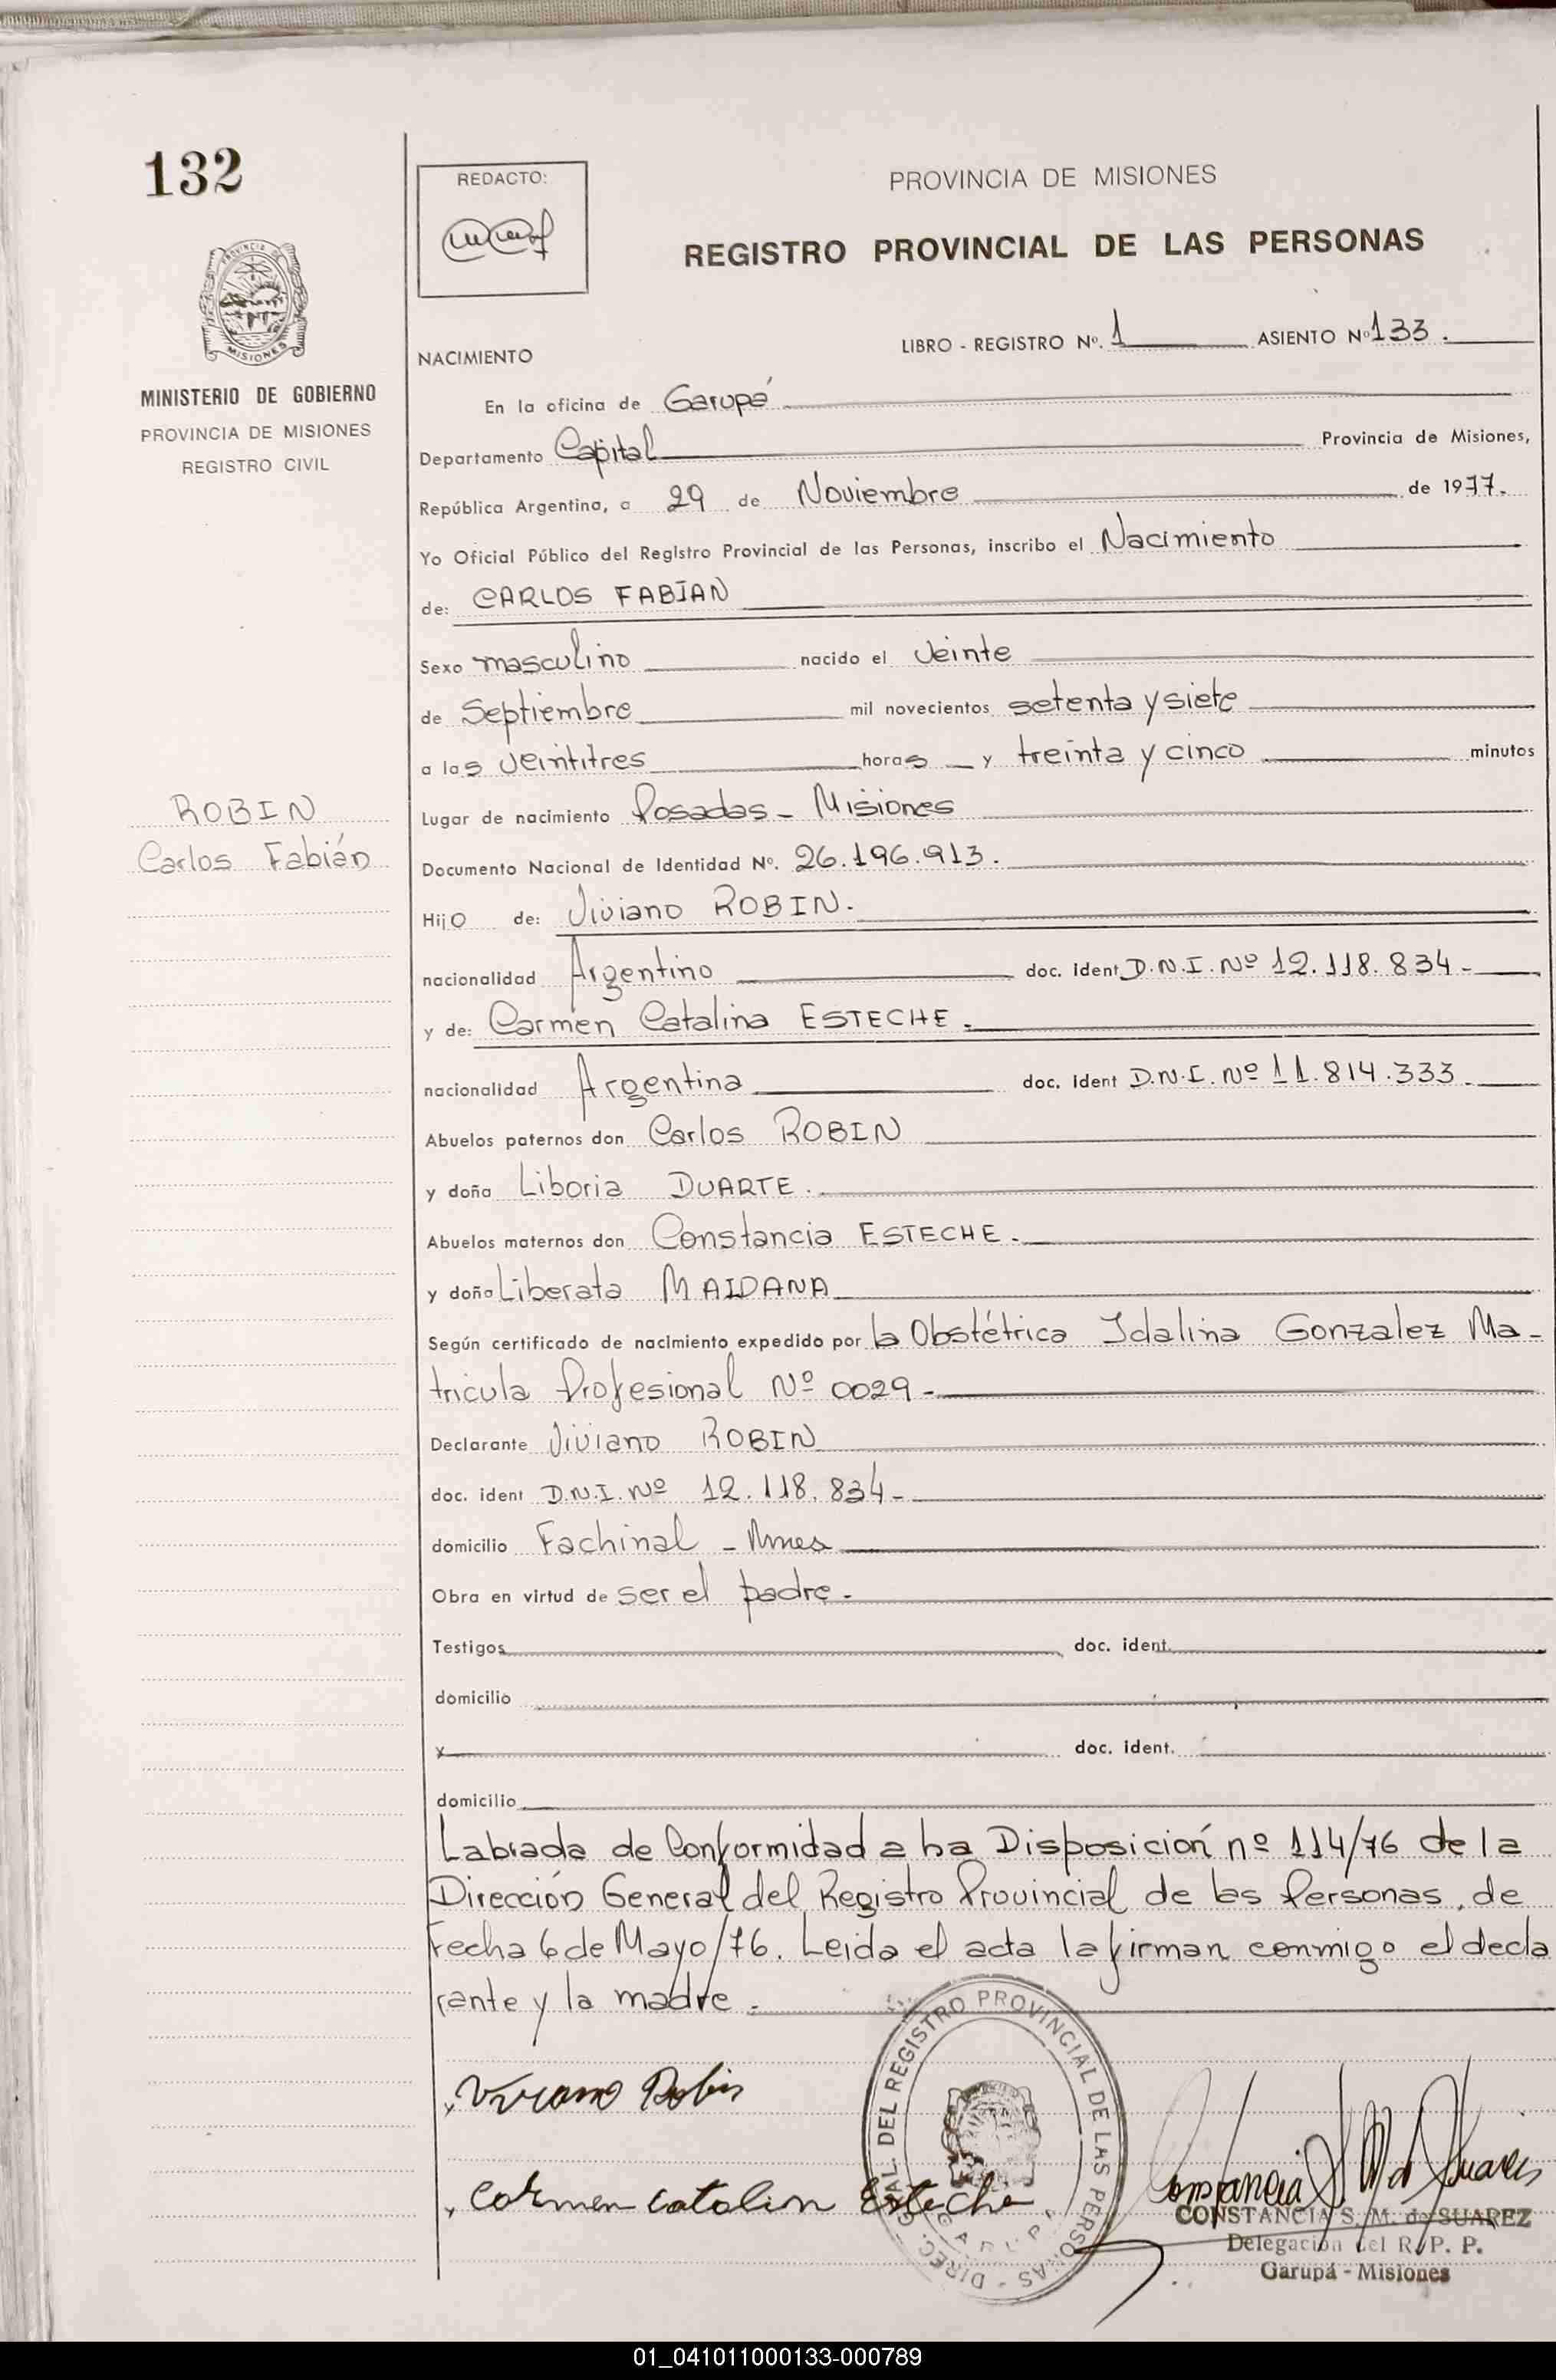 132
REDACTO:
PROVINCIA DE MISIONES
REGISTRO PROVINCIAL DE LAS PERSONAS
MISIONES
MINISTERIO DE GOBIERNO
PROVINCIA DE MISIONES
REGISTRO CIVIL
LIBRO - REGISTRO Nº. 1 ASIENTO Nº 133.
NACIMIENTO
En la oficina de Garupá
Departamento Capital Provincia de Misiones,
República Argentina, a 29 de Noviembre de 1977.
Yo Oficial Público del Registro Provincial de las Personas, inscribo el Nacimiento
de: CARLOS FABIAN
Sexo masculino nacido el Veinte
de Septiembre mil novecientos setenta y siete
a las Veintitres horas y treinta y cinco minutos
ROBIN
Carlos Fabián
Lugar de nacimiento Posadas - Misiones
Documento Nacional de Identidad Nº. 26.196.913.
Hijo de: Viviano ROBIN.
nacionalidad Argentino doc. ident D.N.I. Nº 12.118.834-
y de: Carmen Catalina ESTECHE.
nacionalidad Argentina doc. ident D.N.I. Nº 11.814.333.
Abuelos paternos don Carlos ROBIN
y doña Liboria DUARTE.
Abuelos maternos don Constancia ESTECHE.
y doña Liberata MAIDANA
Según certificado de nacimiento expedido por la Obstétrica Idalina Gonzalez Ma-
tricula Profesional Nº 0029-
Declarante Viviano ROBIN
doc. ident D.N.I. Nº 12.118.834-
domicilio Fachinal - Mnes
Obra en virtud de ser el padre.
Testigos doc. ident.
domicilio
y doc. ident.
domicilio
Labrada de Conformidad a ha Disposición nº 114/76 de la
Dirección General del Registro Provincial de las Personas, de
Fecha 6 de Mayo/76. Leida el acta la firman conmigo el decla
rante y la madre.
Viviano Robin
Carmen catalin Esteche
DIREC. GRAL. DEL REGISTRO PROVINCIAL DE LAS PERSONAS -
GARUPA
Constancia S M de Suarez
CONSTANCIA S. M. de SUAREZ
Delegación del R. P. P.
Garupá - Misiones
01_041011000133-000789